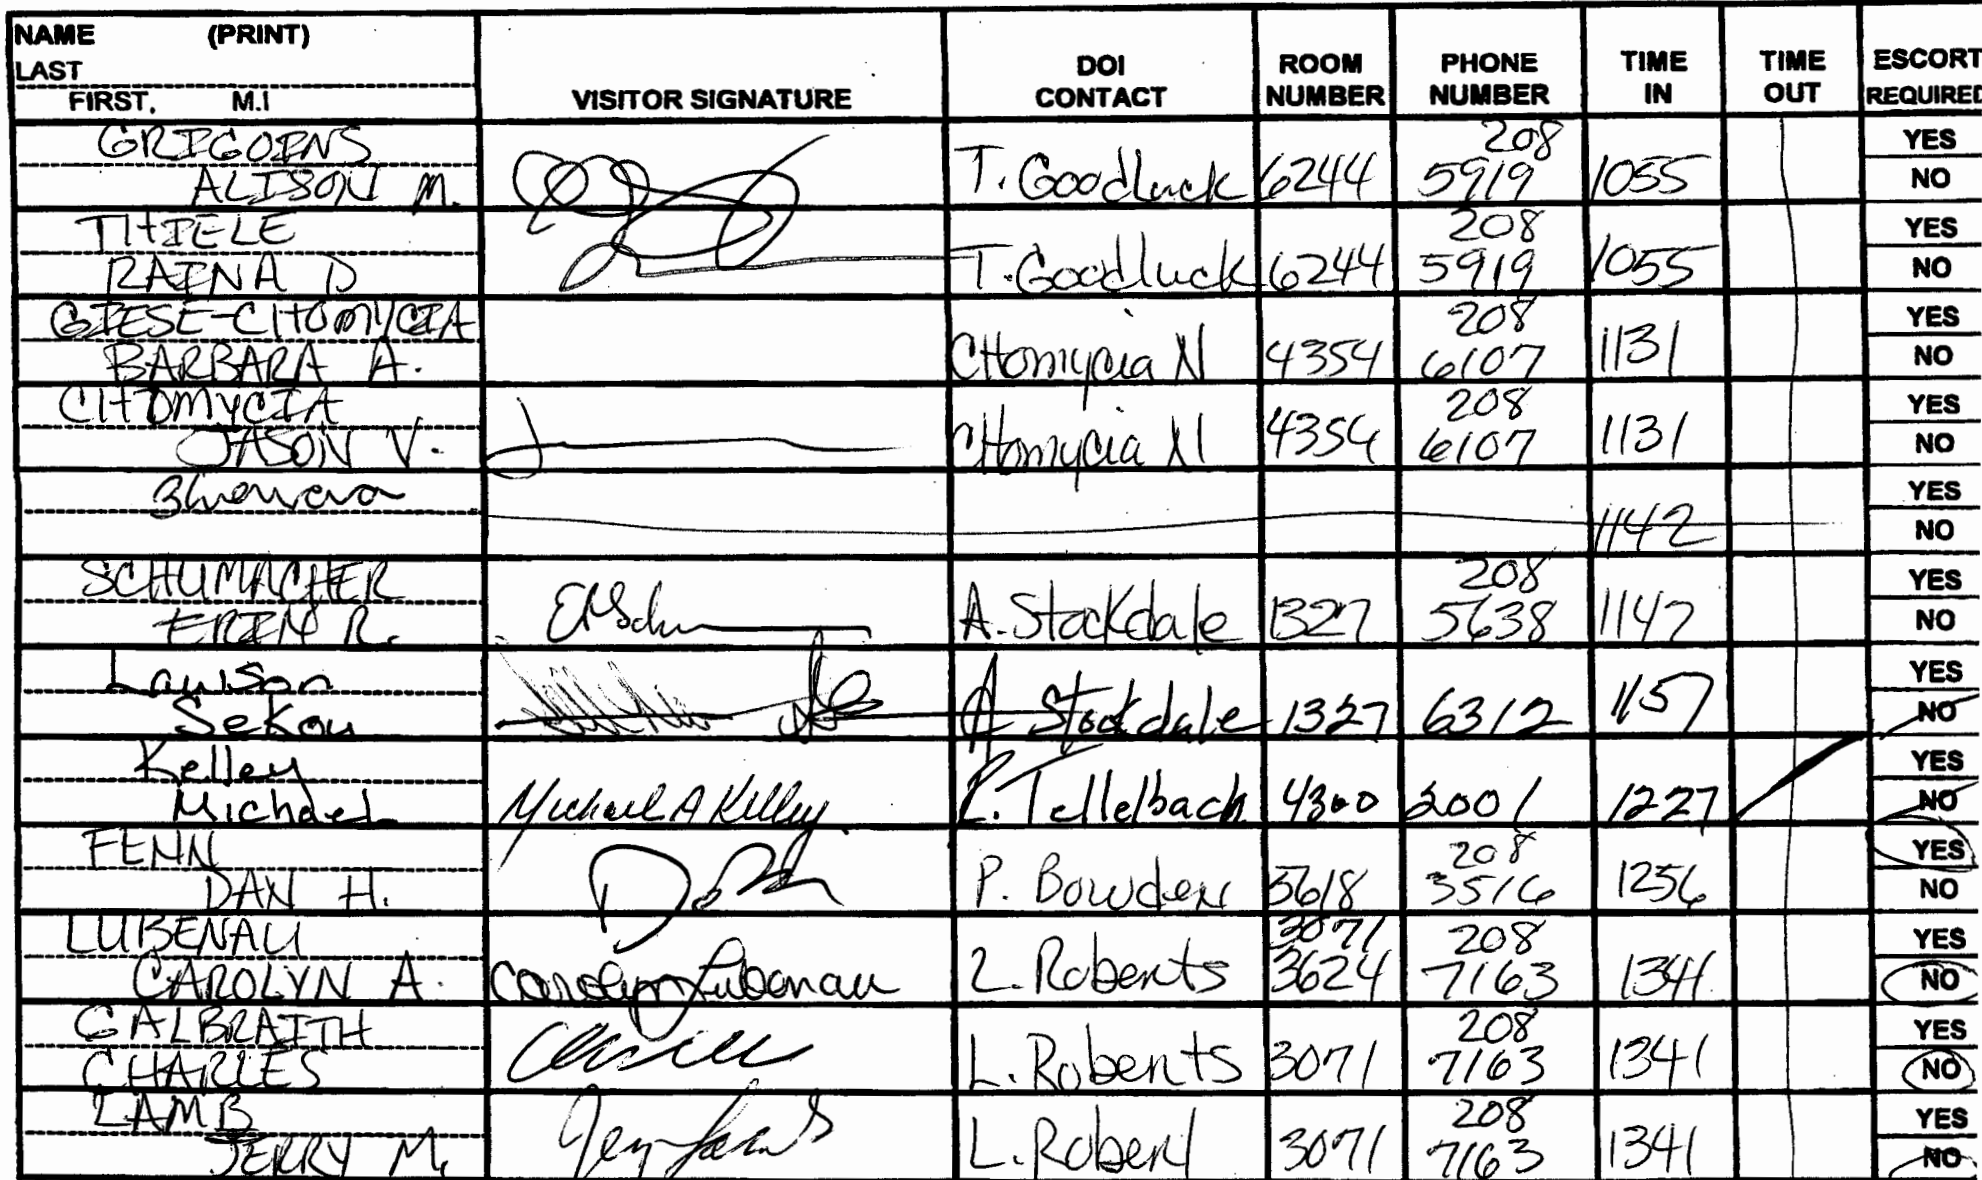 NAME (PRINT)
LAST
FIRST, M.I
VISITOR SIGNATURE
DOI CONTACT
ROOM NUMBER
PHONE NUMBER
TIME IN
TIME OUT
ESCORT REQUIRED
GRIGOINS
ALISON M. T. Goodluck 6244 208 5919 1055 YES NO
THIELE
RAINA D T. Goodluck 6244 208 5919 1055 YES NO
GIESE-CHOMYCIA
BARBARA A. CHomycia N 4354 208 6107 1131 YES NO
CHOMYCIA
JASON V. CHomycia N 4354 208 6107 1131 YES NO
1142 YES NO
SCHUMACHER
ERIN R. A. Stockdale 1327 208 5638 1142 YES NO
Lawson
Sekou A Stockdale 1327 6312 1157 YES NO
Kelley
Michael Michael A Kelley Tellelbach 4300 2001 1227 YES NO
FENN
DAN H. P. Bowden 5618 208 3516 1256 YES NO
LUBENAU
CAROLYN A. Carolyn Lubenau L. Roberts 3071 3624 208 7163 1341 YES NO
GALBRAITH
CHARLES L. Roberts 3071 208 7163 1341 YES NO
LAMB
JERRY M. L. Robert 3071 208 7163 1341 YES NO